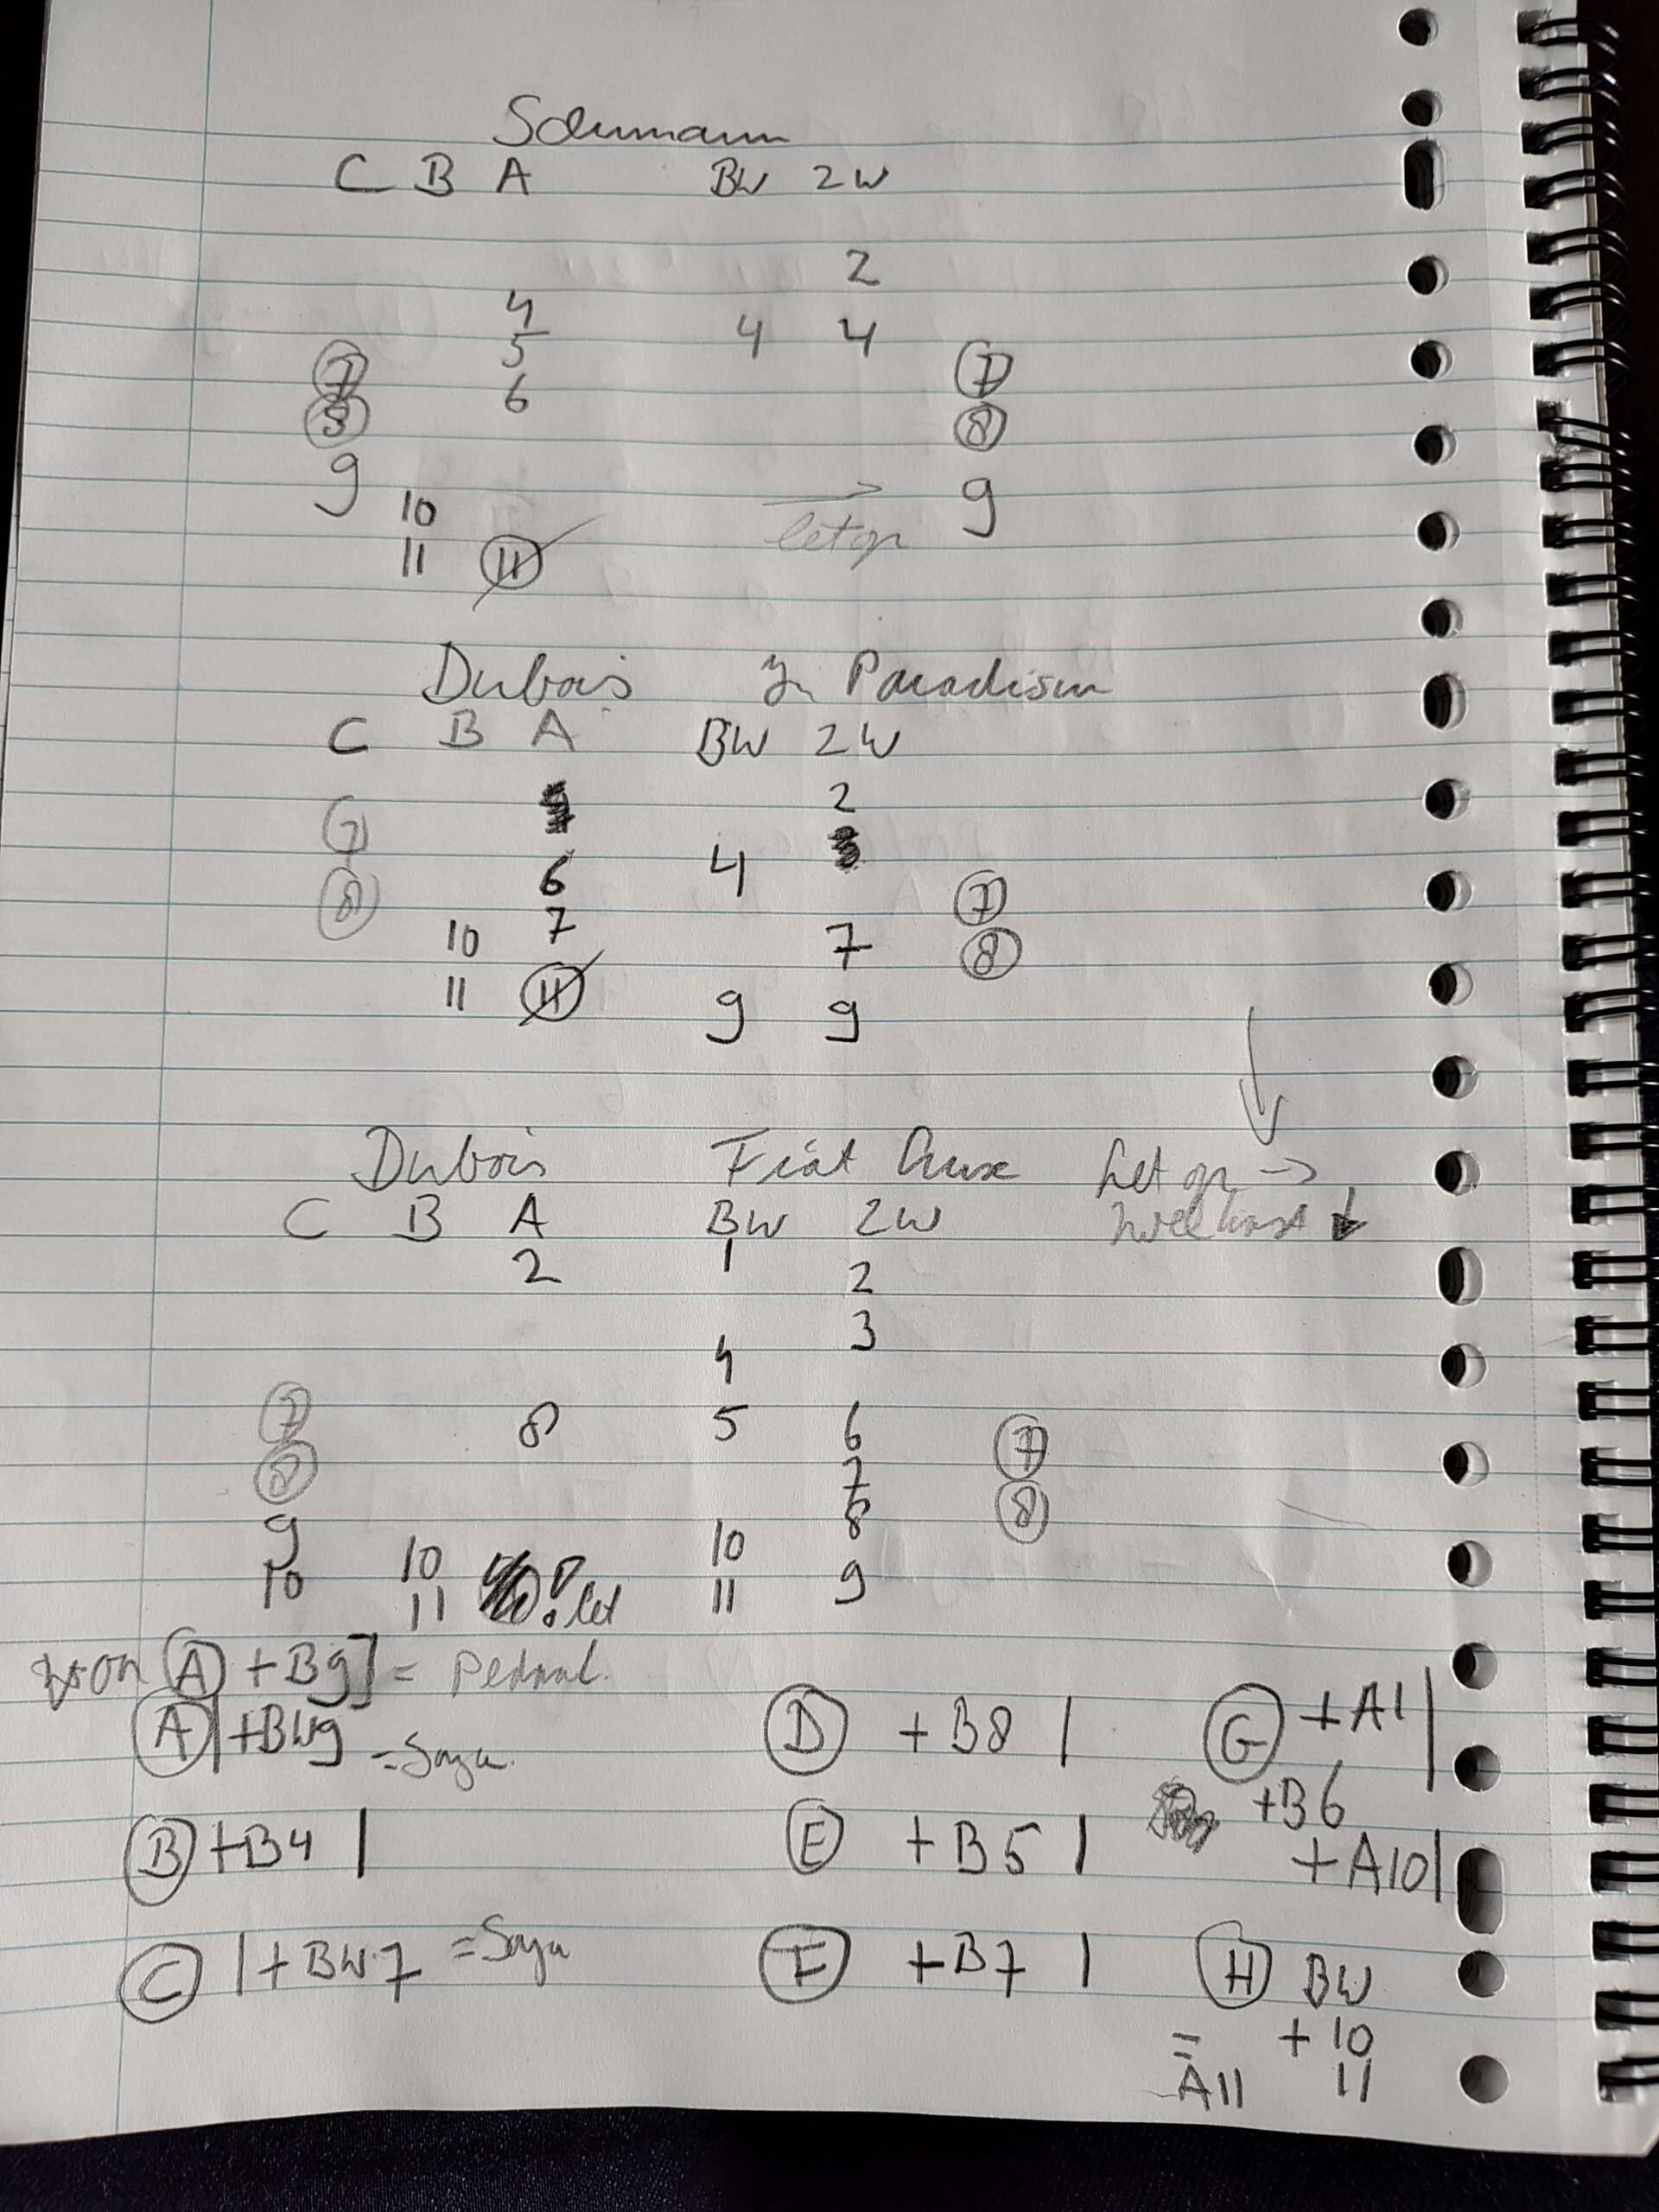 Schumann
C B A BW ZW
2
4
5 4 4
7 7
6
8 8
9 9
10
let op
11 11
Dubois In Paradisum
C B A BW ZW
2
7
6 4
8 7 7
10 7 8
11 11 9 9
Dubois Fiat Lux Let op →
C B A BW ZW ↓
2 1 2
3
4
7 8 5 6 7
8 7
9 8 8
10 10 10
11 ! let 11 9
A + B9] =
A | + BW9 = D + B8 | G + A1 |
+ B6
B + B4 | E + B5 | + A10 |
C | + BW7 = F + B7 | H BW
= + 10
A11 11